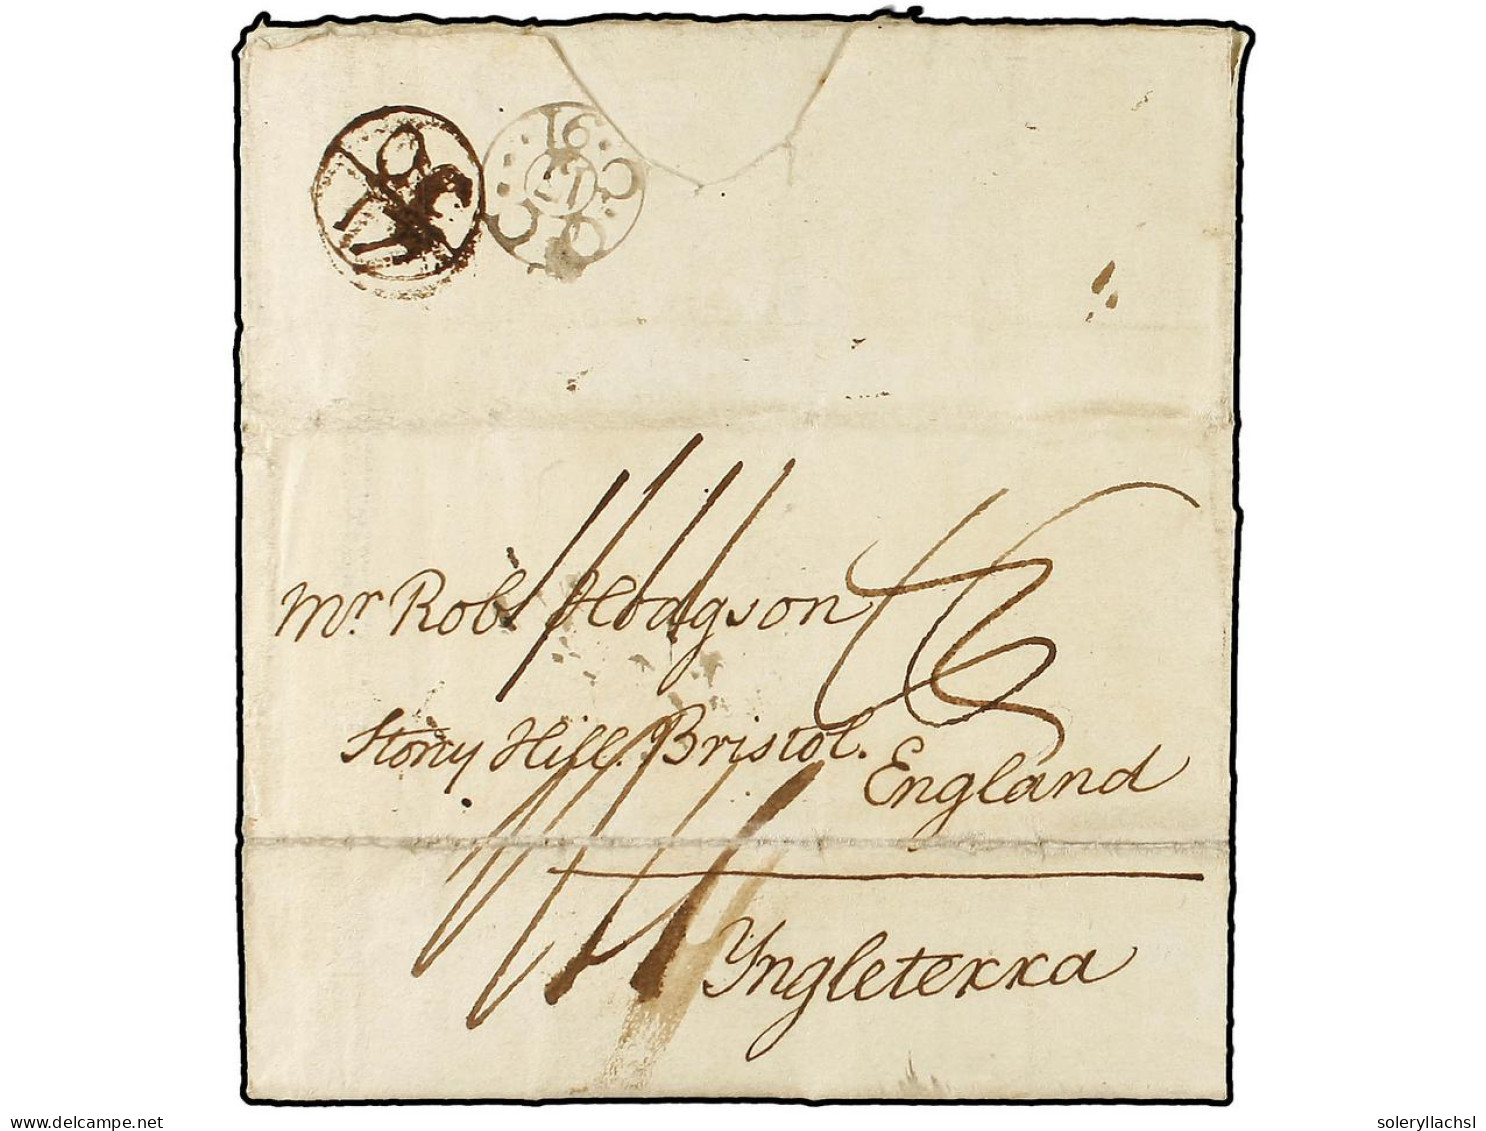 16
OC
17
Mr. Robt Hodgson
Stony Hill. Bristol.
England
Yngleterra
delcampe.net
soleryllachsl